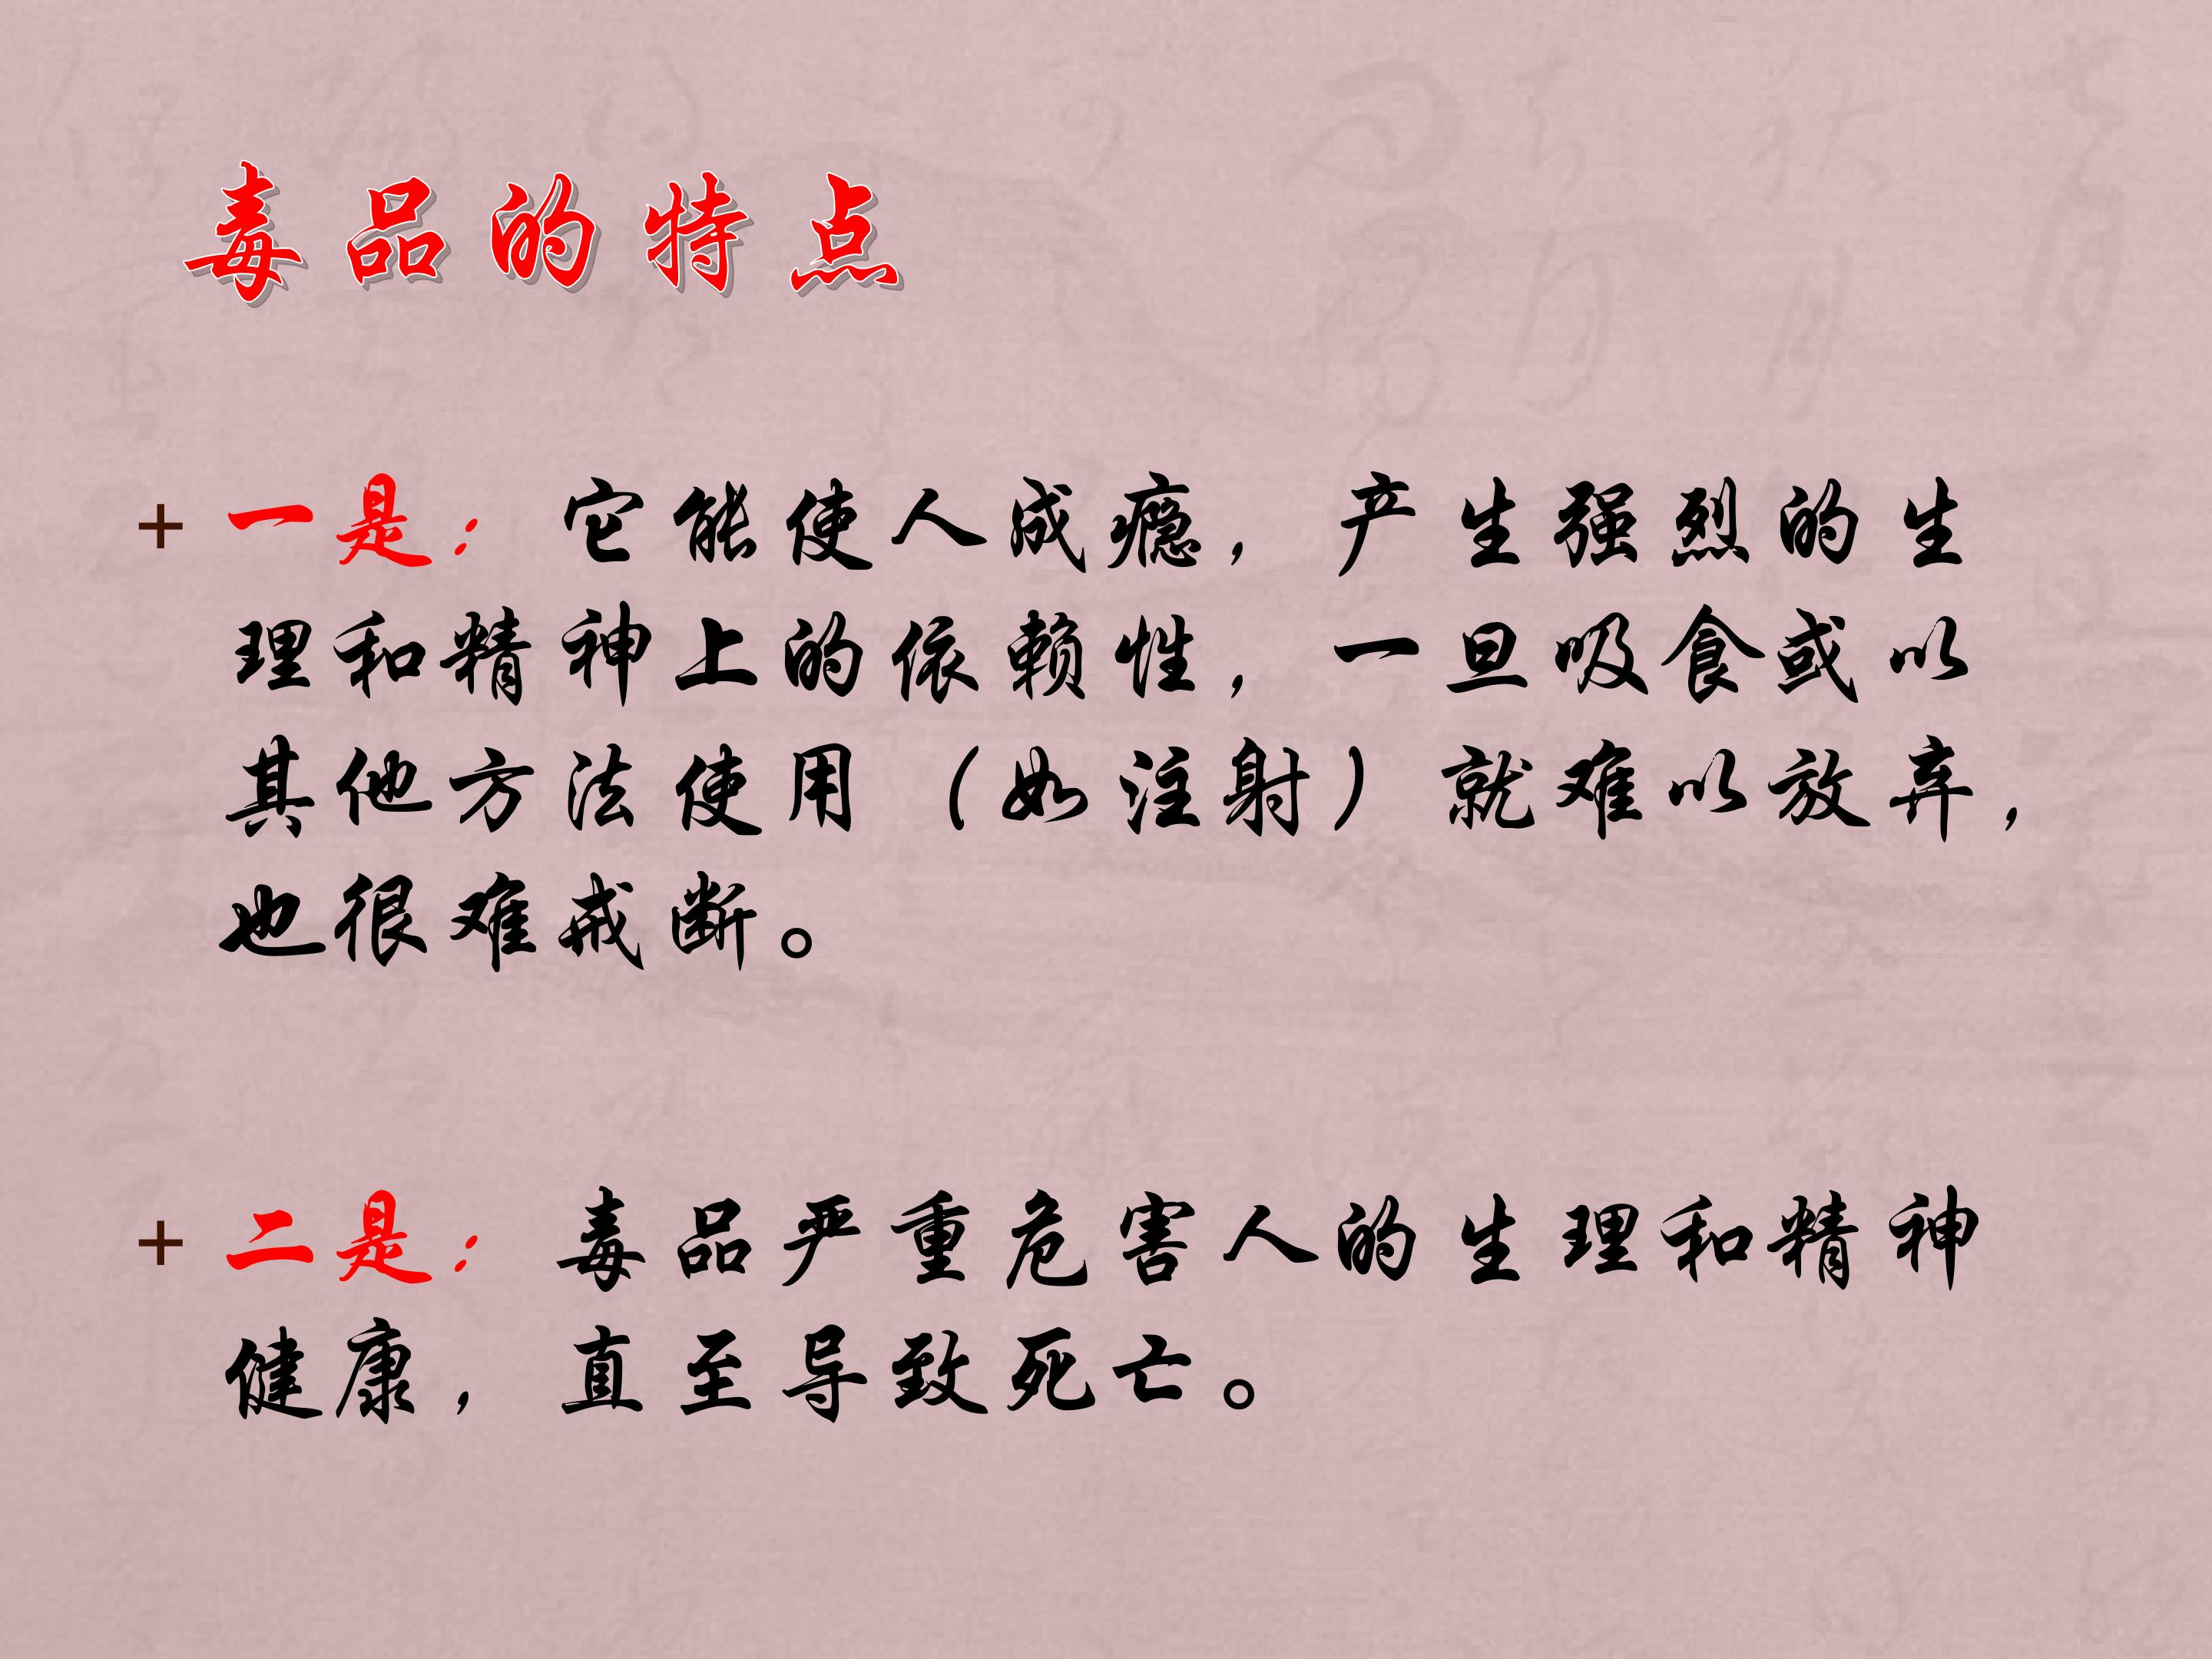 毒品的特点
+ 一是：它能使人成瘾，产生强烈的生
理和精神上的依赖性，一旦吸食或以
其他方法使用（如注射）就难以放弃，
也很难戒断。
+ 二是：毒品严重危害人的生理和精神
健康，直至导致死亡。